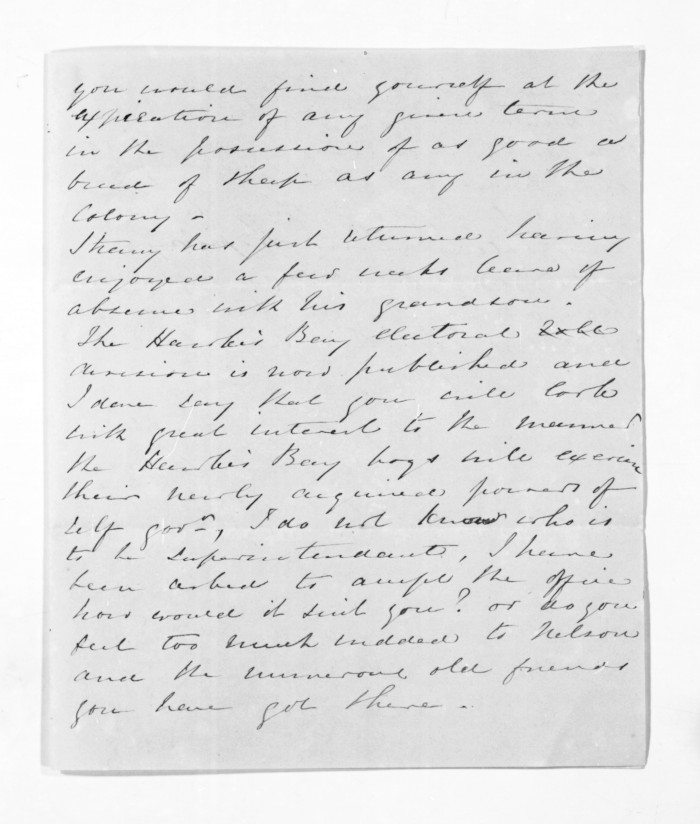 you would find yourself at the
expiration of any given term
in the possession of as good a
breed of sheep as any in the
Colony -
has just returned having
enjoyed a few weeks leave of
absence with his grandson.
The Hawke's Bay electoral
division is now published and
I dare say that you will look
with great interest to the manner
the Hawke's Bay boys will exercise
their newly acquired powers of
self govt, I do not know who is
to be Superintendants, I have
been asked to accept the office
how would it suit you? or do you
feel too much wedded to Nelson
and the numerous old friends
you have got there.